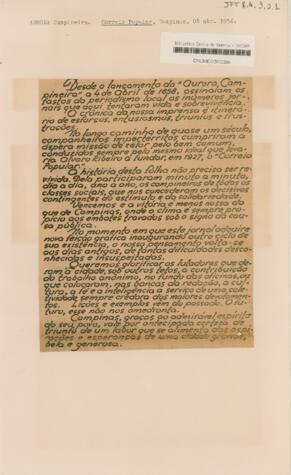 AURORA Campineira. Correio Popular, Campinas, 08 abr. 1956.
Biblioteca Centro de Memória - UNICAMP
CMUHE
"Desde o lançamento da "Aurora Cam-
pineira" a 4 de Abril de 1858, assinalam os
fastos do periodismo local as inúmeras jor-
nais que aqui tentaram vida e sobrevivência.
A crônica da nossa imprensa é itinerá-
rio de esforços, entusiasmos, triunfos e frus-
trações.
Ao longo caminho de quase um século,
companheiros impertérritos cumpriram a
áspera missão de zelar pelo bem comum,
conduzidos sempre pelo mesmo ideal que leva-
ria Álvaro Ribeiro a fundar, em 1927, o "Correio
Popular".
A história desta folha não precisa ser re-
vivida. Dela participaram minuto a minuto,
dia a dia, ano a ano, os campineiros de todas as
classes sociais, que nos concederam os decisivos
contingentes do estímulo e da solidariedade.
Vencemos e a vitória é menos nossa do
que de Campinas, onde o clima é sempre pro-
pício aos embates travados sob o signo da cau-
sa pública.
No momento em que este jornal adquire
nova feição gráfica inaugurando outro ciclo de
sua existência, o nosso pensamento volta-se
aos dias antigos, de tantas dificuldades desco-
nhecidas e insuspeitadas.
Queremos glorificar os lutadores que de-
ram à cidade, sob outros tetos, a contribuição
do trabalho anônimo, no fundo das oficinas, os
que colocaram, nas bancas da redação, a cul-
tura, a fé e a inteligência a serviço de uma cole-
tividade sempre credora dos maiores devotamen-
tos. Lições e exemplos vem do passado. O fu-
turo, esse não nos amedronta.
Campinas, graças ao admirável espírito
do seu povo, vale por antecipada certeza de
triunfo de um labor que se alimenta das aspi-
rações e esperanças de uma cidade grande,
bela e generosa.